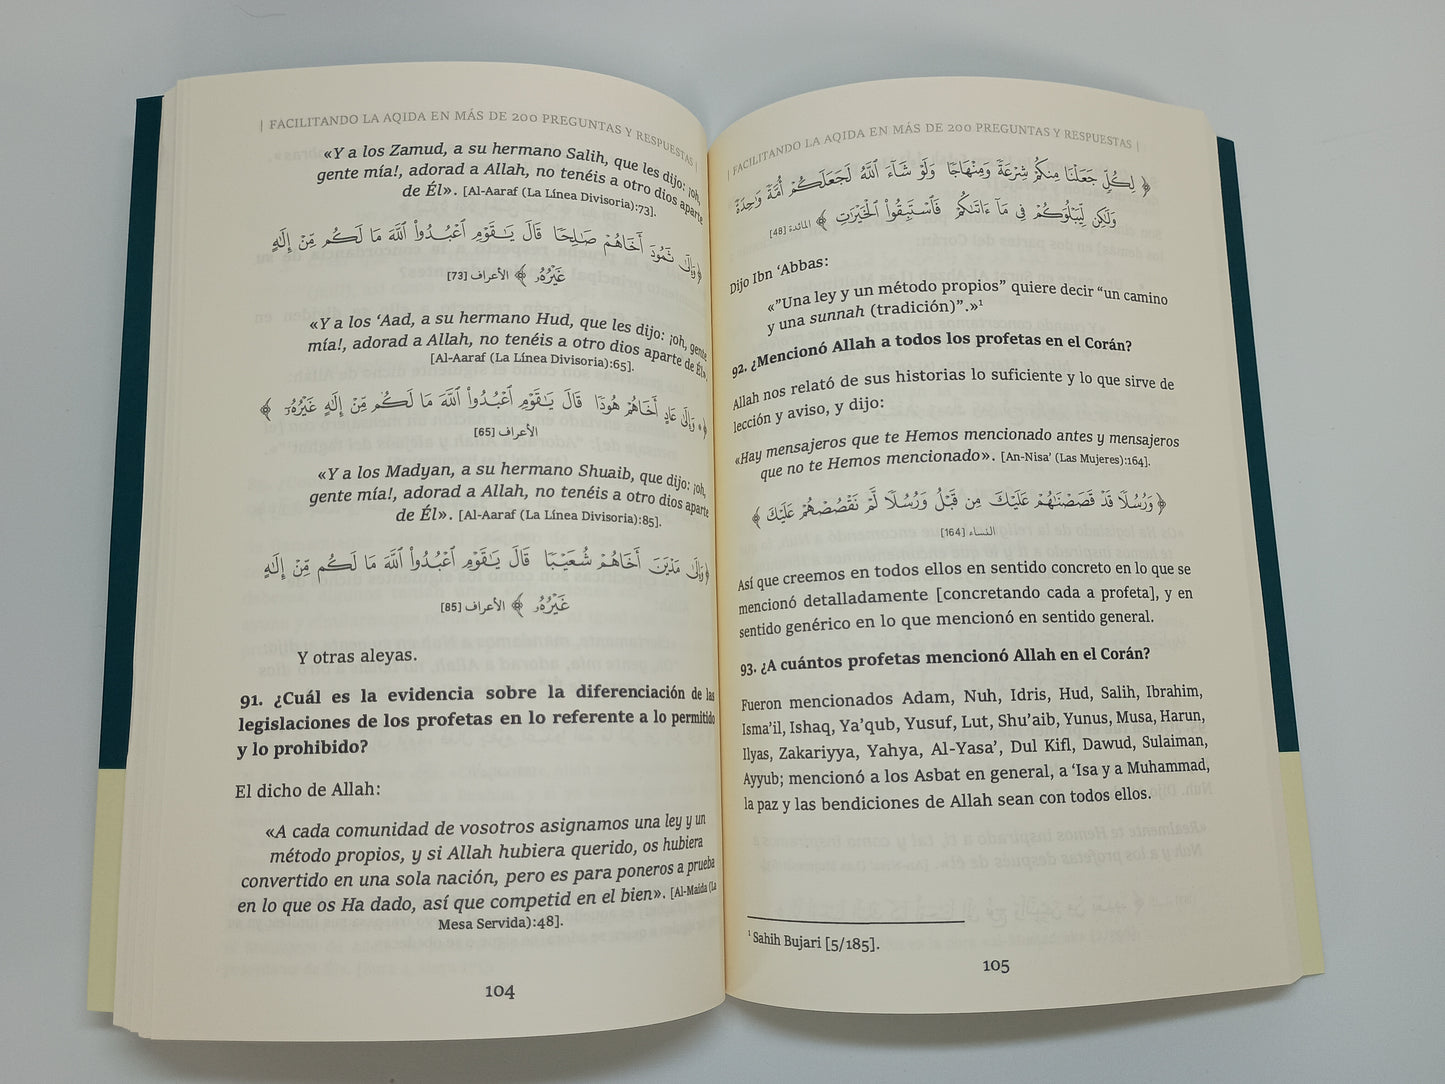 | FACILITANDO LA AQIDA EN MÁS DE 200 PREGUNTAS Y RESPUESTAS |
«Y a los Zamud, a su hermano Salih, que les dijo: ¡oh,
gente mía!, adorad a Allah, no tenéis a otro dios aparte
de Él». [Al-Aaraf (La Línea Divisoria):73].
﴿ وَإِلَىٰ ثَمُودَ أَخَاهُمْ صَـٰلِحًا ۗ قَالَ يَـٰقَوْمِ ٱعْبُدُوا۟ ٱللَّهَ مَا لَكُم مِّنْ إِلَـٰهٍ
غَيْرُهُۥ ﴾ الأعراف [73]
«Y a los ‘Aad, a su hermano Hud, que les dijo: ¡oh, gente
mía!, adorad a Allah, no tenéis a otro dios aparte de Él».
[Al-Aaraf (La Línea Divisoria):65].
﴿ ۞ وَإِلَىٰ عَادٍ أَخَاهُمْ هُودًا ۗ قَالَ يَـٰقَوْمِ ٱعْبُدُوا۟ ٱللَّهَ مَا لَكُم مِّنْ إِلَـٰهٍ غَيْرُهُۥ ﴾
الأعراف [65]
«Y a los Madyan, a su hermano Shuaib, que dijo: ¡oh,
gente mía!, adorad a Allah, no tenéis a otro dios aparte
de Él». [Al-Aaraf (La Línea Divisoria):85].
﴿ وَإِلَىٰ مَدْيَنَ أَخَاهُمْ شُعَيْبًا ۗ قَالَ يَـٰقَوْمِ ٱعْبُدُوا۟ ٱللَّهَ مَا لَكُم مِّنْ إِلَـٰهٍ
غَيْرُهُۥ ﴾ الأعراف [85]
Y otras aleyas.
91. ¿Cuál es la evidencia sobre la diferenciación de las
legislaciones de los profetas en lo referente a lo permitido
y lo prohibido?
El dicho de Allah:
«A cada comunidad de vosotros asignamos una ley y un
método propios, y si Allah hubiera querido, os hubiera
convertido en una sola nación, pero es para poneros a prueba
en lo que os Ha dado, así que competid en el bien». [Al-Maida (La
Mesa Servida):48].
104
| FACILITANDO LA AQIDA EN MÁS DE 200 PREGUNTAS Y RESPUESTAS |
﴿ لِكُلٍّ جَعَلْنَا مِنكُمْ شِرْعَةً وَمِنْهَاجًا ۚ وَلَوْ شَآءَ ٱللَّهُ لَجَعَلَكُمْ أُمَّةً وَٰحِدَةً
وَلَـٰكِن لِّيَبْلُوَكُمْ فِى مَآ ءَاتَىٰكُمْ ۖ فَٱسْتَبِقُوا۟ ٱلْخَيْرَٰتِ ﴾ المائدة [48]
Dijo Ibn ‘Abbas:
«”Una ley y un método propios” quiere decir “un camino
y una sunnah (tradición)”.»¹
92. ¿Mencionó Allah a todos los profetas en el Corán?
Allah nos relató de sus historias lo suficiente y lo que sirve de
lección y aviso, y dijo:
«Hay mensajeros que te Hemos mencionado antes y mensajeros
que no te Hemos mencionado». [An-Nisa’ (Las Mujeres):164].
﴿ وَرُسُلًا قَدْ قَصَصْنَـٰهُمْ عَلَيْكَ مِن قَبْلُ وَرُسُلًا لَّمْ نَقْصُصْهُمْ عَلَيْكَ ﴾
النساء [164]
Así que creemos en todos ellos en sentido concreto en lo que se
mencionó detalladamente [concretando cada a profeta], y en
sentido genérico en lo que mencionó en sentido general.
93. ¿A cuántos profetas mencionó Allah en el Corán?
Fueron mencionados Adam, Nuh, Idris, Hud, Salih, Ibrahim,
Isma’il, Ishaq, Ya’qub, Yusuf, Lut, Shu’aib, Yunus, Musa, Harun,
Ilyas, Zakariyya, Yahya, Al-Yasa’, Dul Kifl, Dawud, Sulaiman,
Ayyub; mencionó a los Asbat en general, a ‘Isa y a Muhammad,
la paz y las bendiciones de Allah sean con todos ellos.
¹ Sahih Bujari [5/185].
105